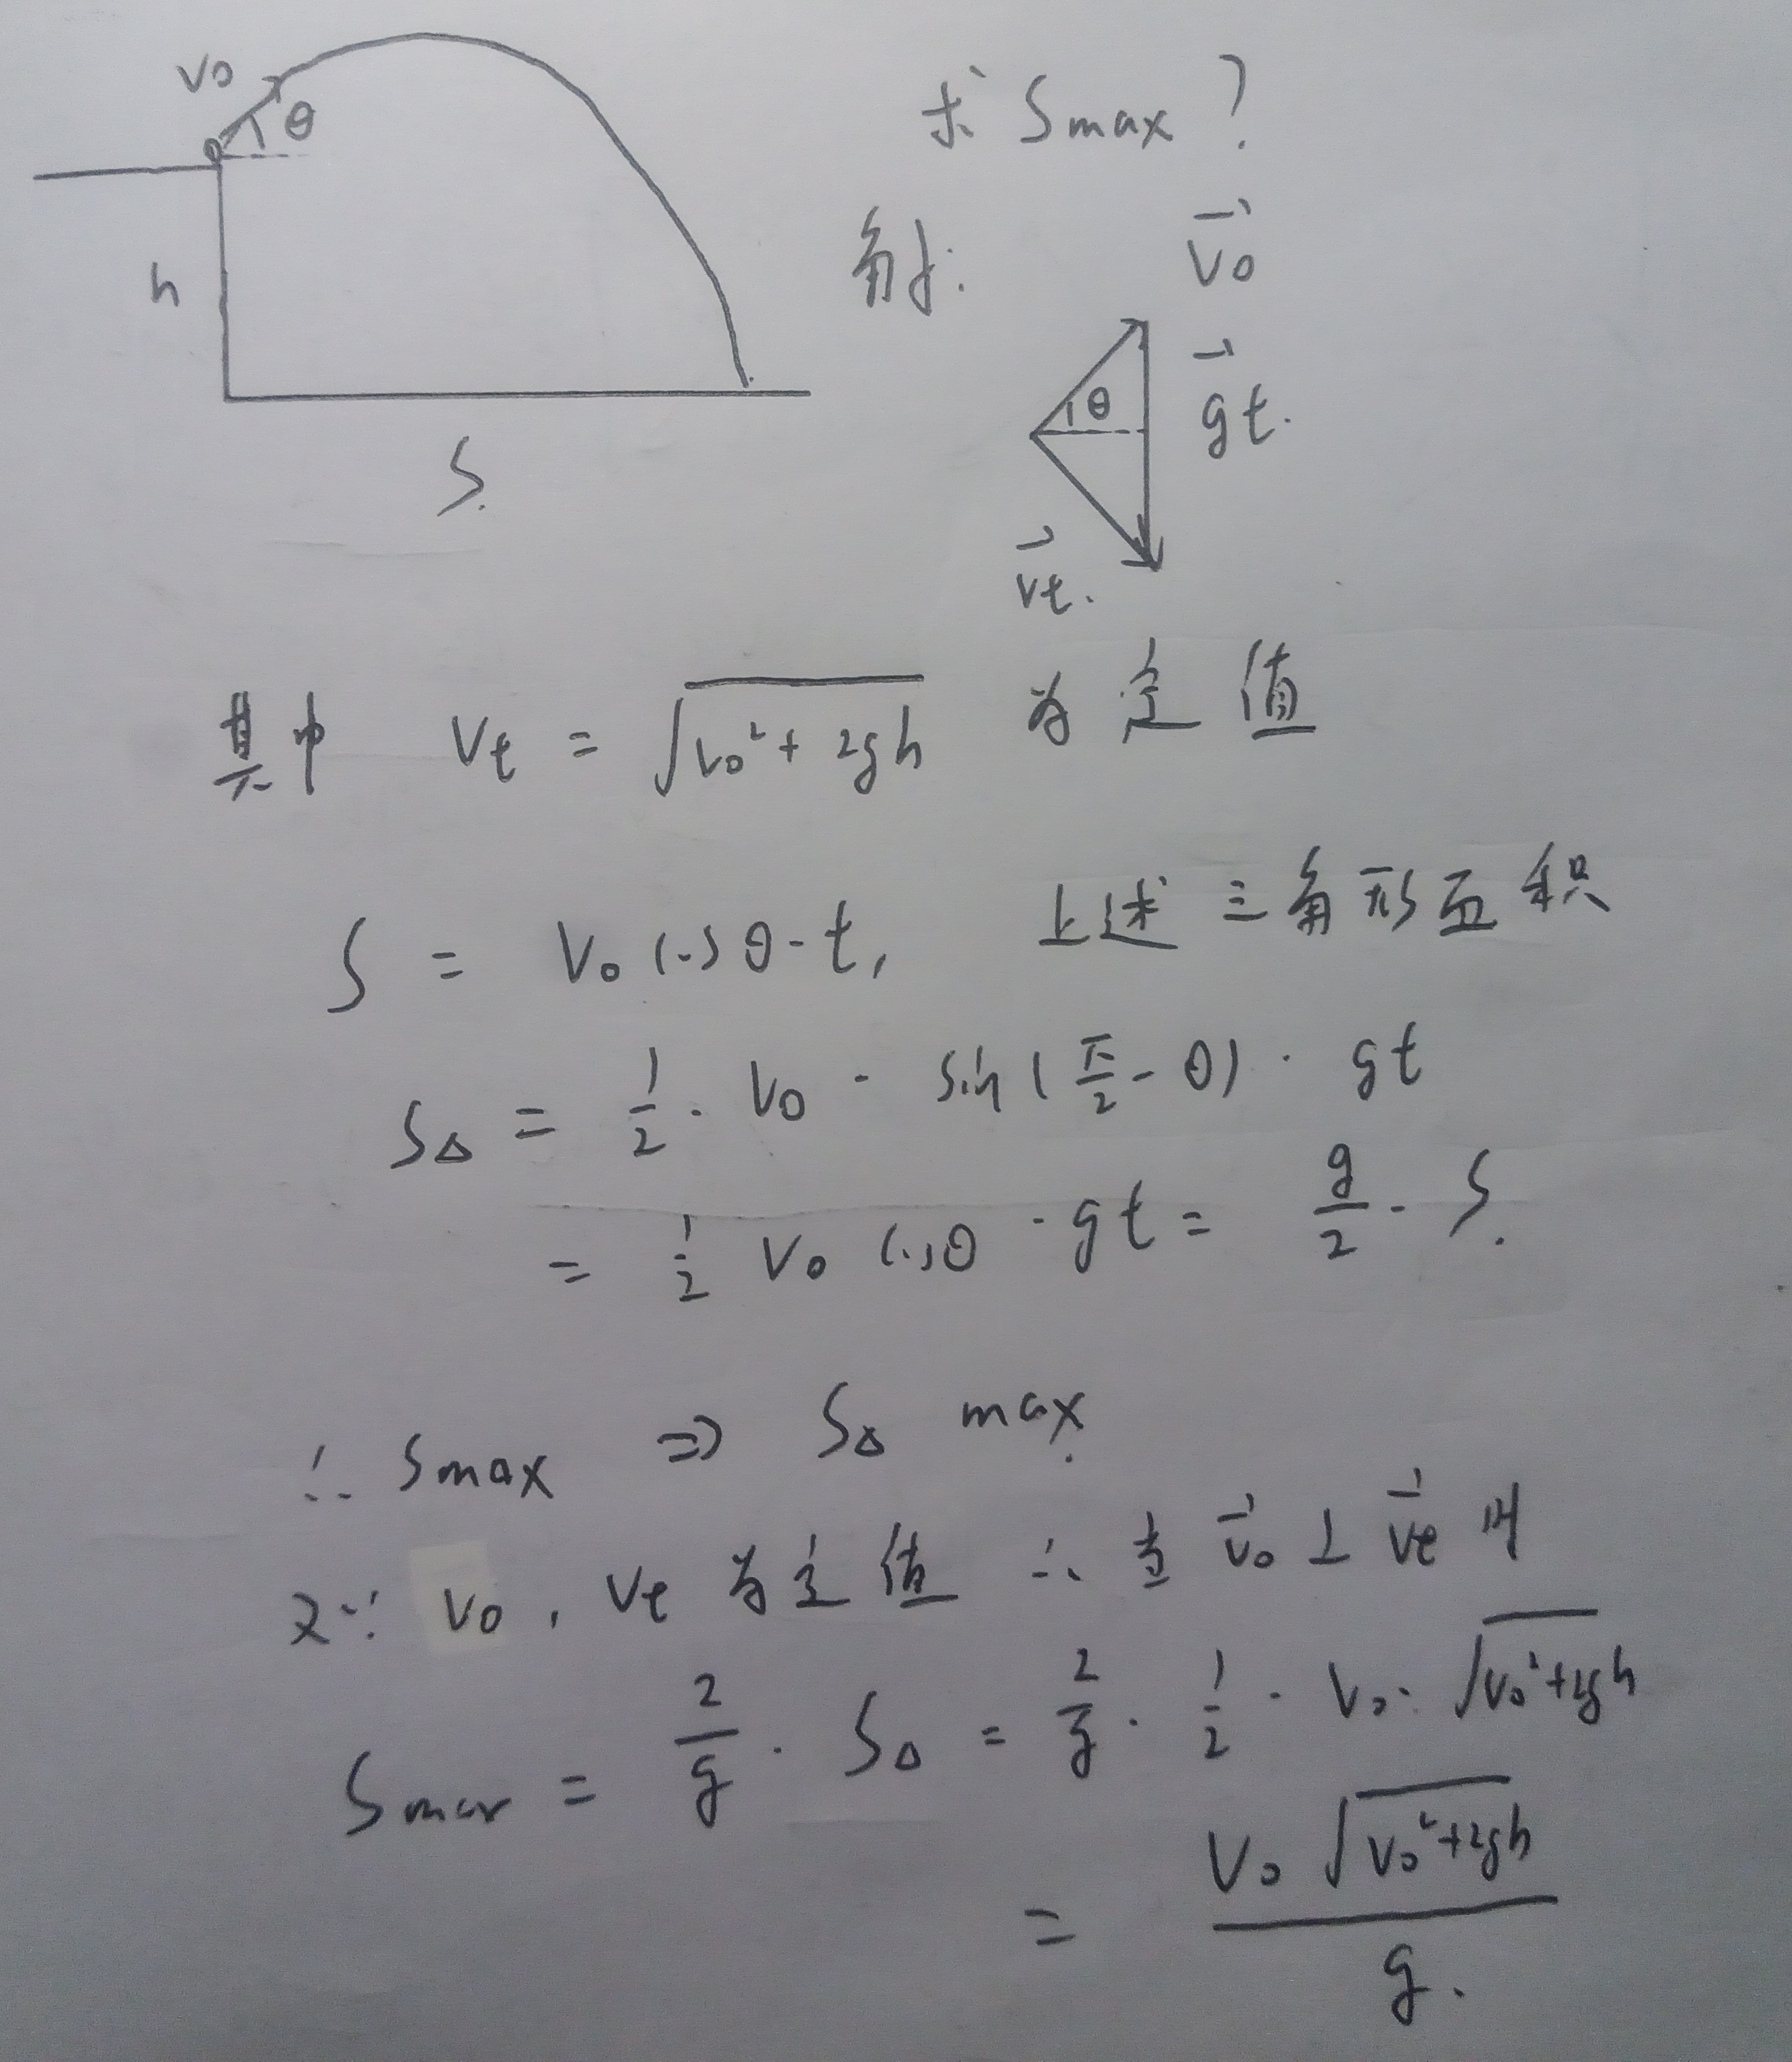 v₀
θ
h
S.
求 Smax ?
解:
v⃗₀
θ
g⃗t.
v⃗t.
其中 Vt = √(v₀²+2gh) 为定值
S = V₀ cosθ·t, 上述三角形面积
S△ = 1/2 · V₀ · sin(π/2 - θ) · gt
= 1/2 V₀ cosθ · gt = g/2 · S.
∴ Smax ⇒ S△ max.
又∵ V₀, Vt 为定值 ∴ 当 v⃗₀ ⊥ v⃗t 时
Smax = 2/g · S△ = 2/g · 1/2 · V₀ · √(v₀²+2gh)
= V₀√(v₀²+2gh) / g.